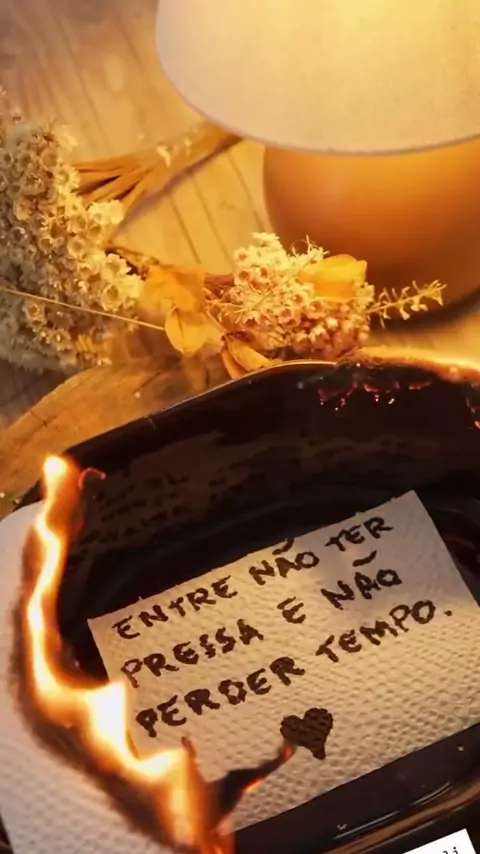 ENTRE NÃO TER
PRESSA E NÃO
PERDER TEMPO.